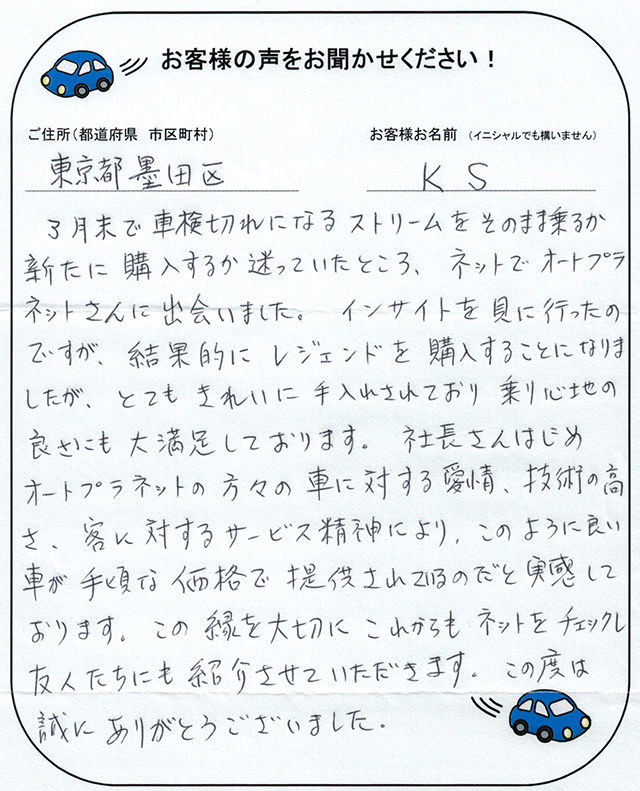 お客様の声をお聞かせください！
ご住所（都道府県　市区町村）
お客様お名前　（イニシャルでも構いません）
東京都墨田区
K S
3月末で車検切れになるストリームをそのまま乗るか
新たに購入するか迷っていたところ、ネットでオートプラ
ネットさんに出会いました。インサイトを見に行ったの
ですが、結果的にレジェンドを購入することになりま
したが、とてもきれいに手入れされており乗り心地の
良さにも大満足しております。社長さんはじめ
オートプラネットの方々の車に対する愛情、技術の高
さ、客に対するサービス精神により、このように良い
車が手頃な価格で提供されているのだと実感して
おります。この縁を大切にこれからもネットをチェックし
友人たちにも紹介させていただきます。この度は
誠にありがとうございました。